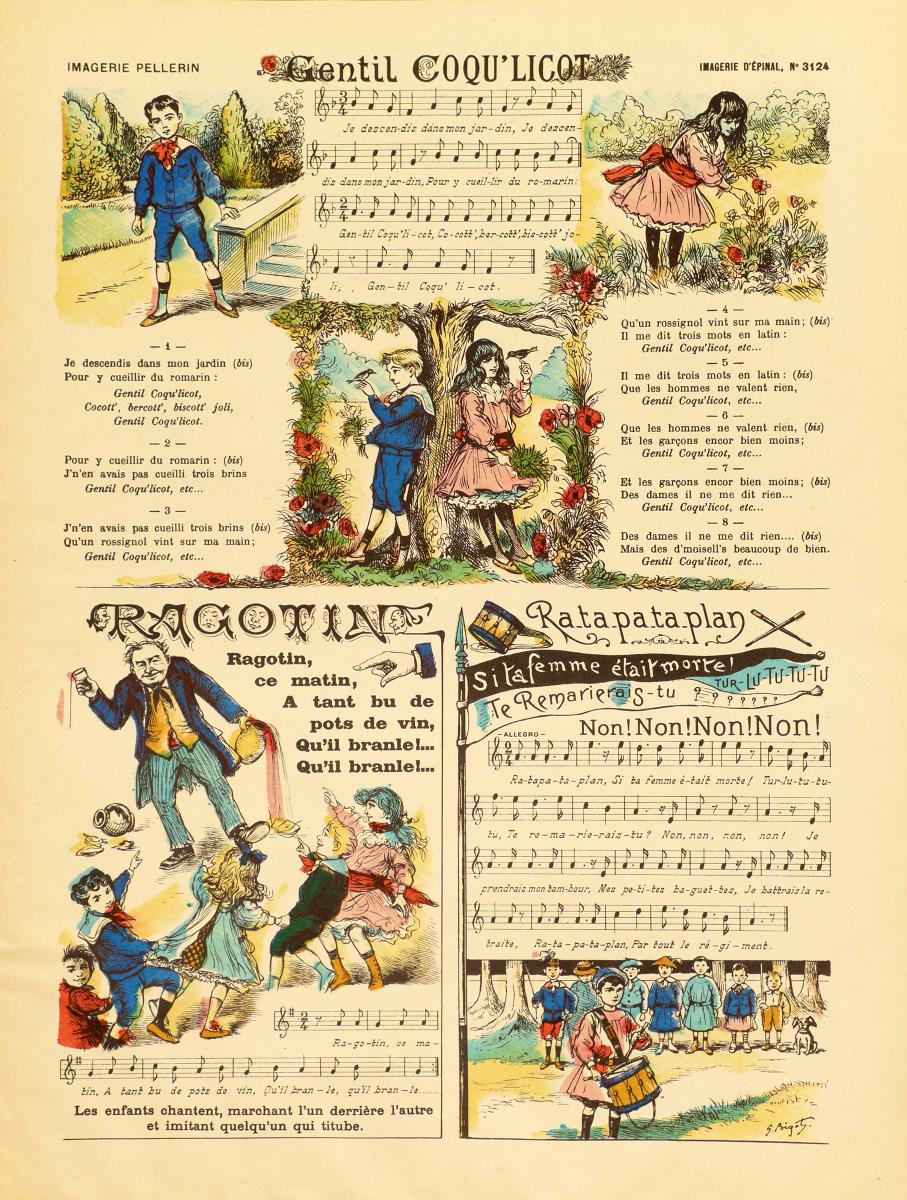 IMAGERIE PELLERIN
Gentil COQU'LICOT
IMAGERIE D'ÉPINAL, Nº 3124
Je descen-dis dans mon jar-din, Je descen-
dis dans mon jar-din, Pour y cueil-lir du ro-marin:
Gen-til Coqu'li-cot, Co-cott', ber-cott', bis-cott' jo-
li; Gen-til Coqu' li-cot.
— 1 —
Je descendis dans mon jardin (bis)
Pour y cueillir du romarin :
Gentil Coqu'licot,
Cocott', bercott', biscott' joli,
Gentil Coqu'licot.
— 2 —
Pour y cueillir du romarin : (bis)
J'n'en avais pas cueilli trois brins
Gentil Coqu'licot, etc...
— 3 —
J'n'en avais pas cueilli trois brins (bis)
Qu'un rossignol vint sur ma main;
Gentil Coqu'licot, etc...
— 4 —
Qu'un rossignol vint sur ma main; (bis)
Il me dit trois mots en latin :
Gentil Coqu'licot, etc...
— 5 —
Il me dit trois mots en latin : (bis)
Que les hommes ne valent rien,
Gentil Coqu'licot, etc...
— 6 —
Que les hommes ne valent rien, (bis)
Et les garçons encor bien moins;
Gentil Coqu'licot, etc...
— 7 —
Et les garçons encor bien moins; (bis)
Des dames il ne me dit rien...
Gentil Coqu'licot, etc...
— 8 —
Des dames il ne me dit rien.... (bis)
Mais des d'moisell's beaucoup de bien.
Gentil Coqu'licot, etc...
RAGOTIN
Ragotin,
ce matin,
A tant bu de
pots de vin,
Qu'il branle!...
Qu'il branle!...
Ra-go-tin, ce ma-
tin, A tant bu de pots de vin, Qu'il bran-le, qu'il bran-le......
Les enfants chantent, marchant l'un derrière l'autre
et imitant quelqu'un qui titube.
Ratapataplan
Si ta femme était morte!
TUR-LU-TU-TU-TU
Te Remarierais-tu ? ? ? ? ? ?
Non! Non! Non! Non!
-ALLEGRO-
Ra-tapa-ta-plan, Si ta femme é-tait morte! Tur-lu-tu-tu-
tu, Te re-ma-rie-rais-tu? Non, non, non, non! Je
prendrais mon tam-bour, Mes pe-ti-tes ba-guet-tes, Je battrais la re-
traite, Ra-ta-pa-ta-plan, Par tout le ré-gi-ment.
G. Bigot